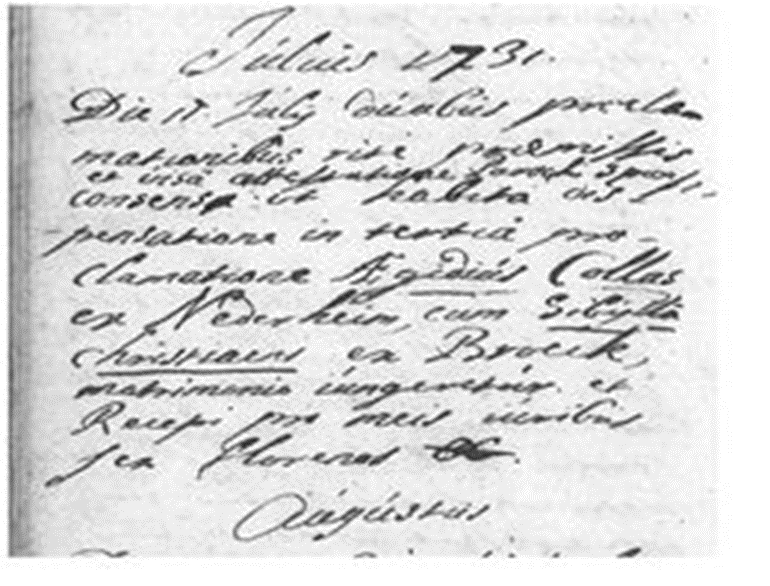 Július 1731.
Die 17. Júlÿ Dúabús procla-
mationibús rité proemissis
et visâ attestatione paroch
consensu et habita dis
pensatione in tertiâ pro-
clamatione Ægidiús Collas
ex Nederheim, cum Sibylla
christiaens ex Broeck,
matrimonio iúngeretúr. et
Recepi pro meis iúribús
sex florenos
Aúgústús